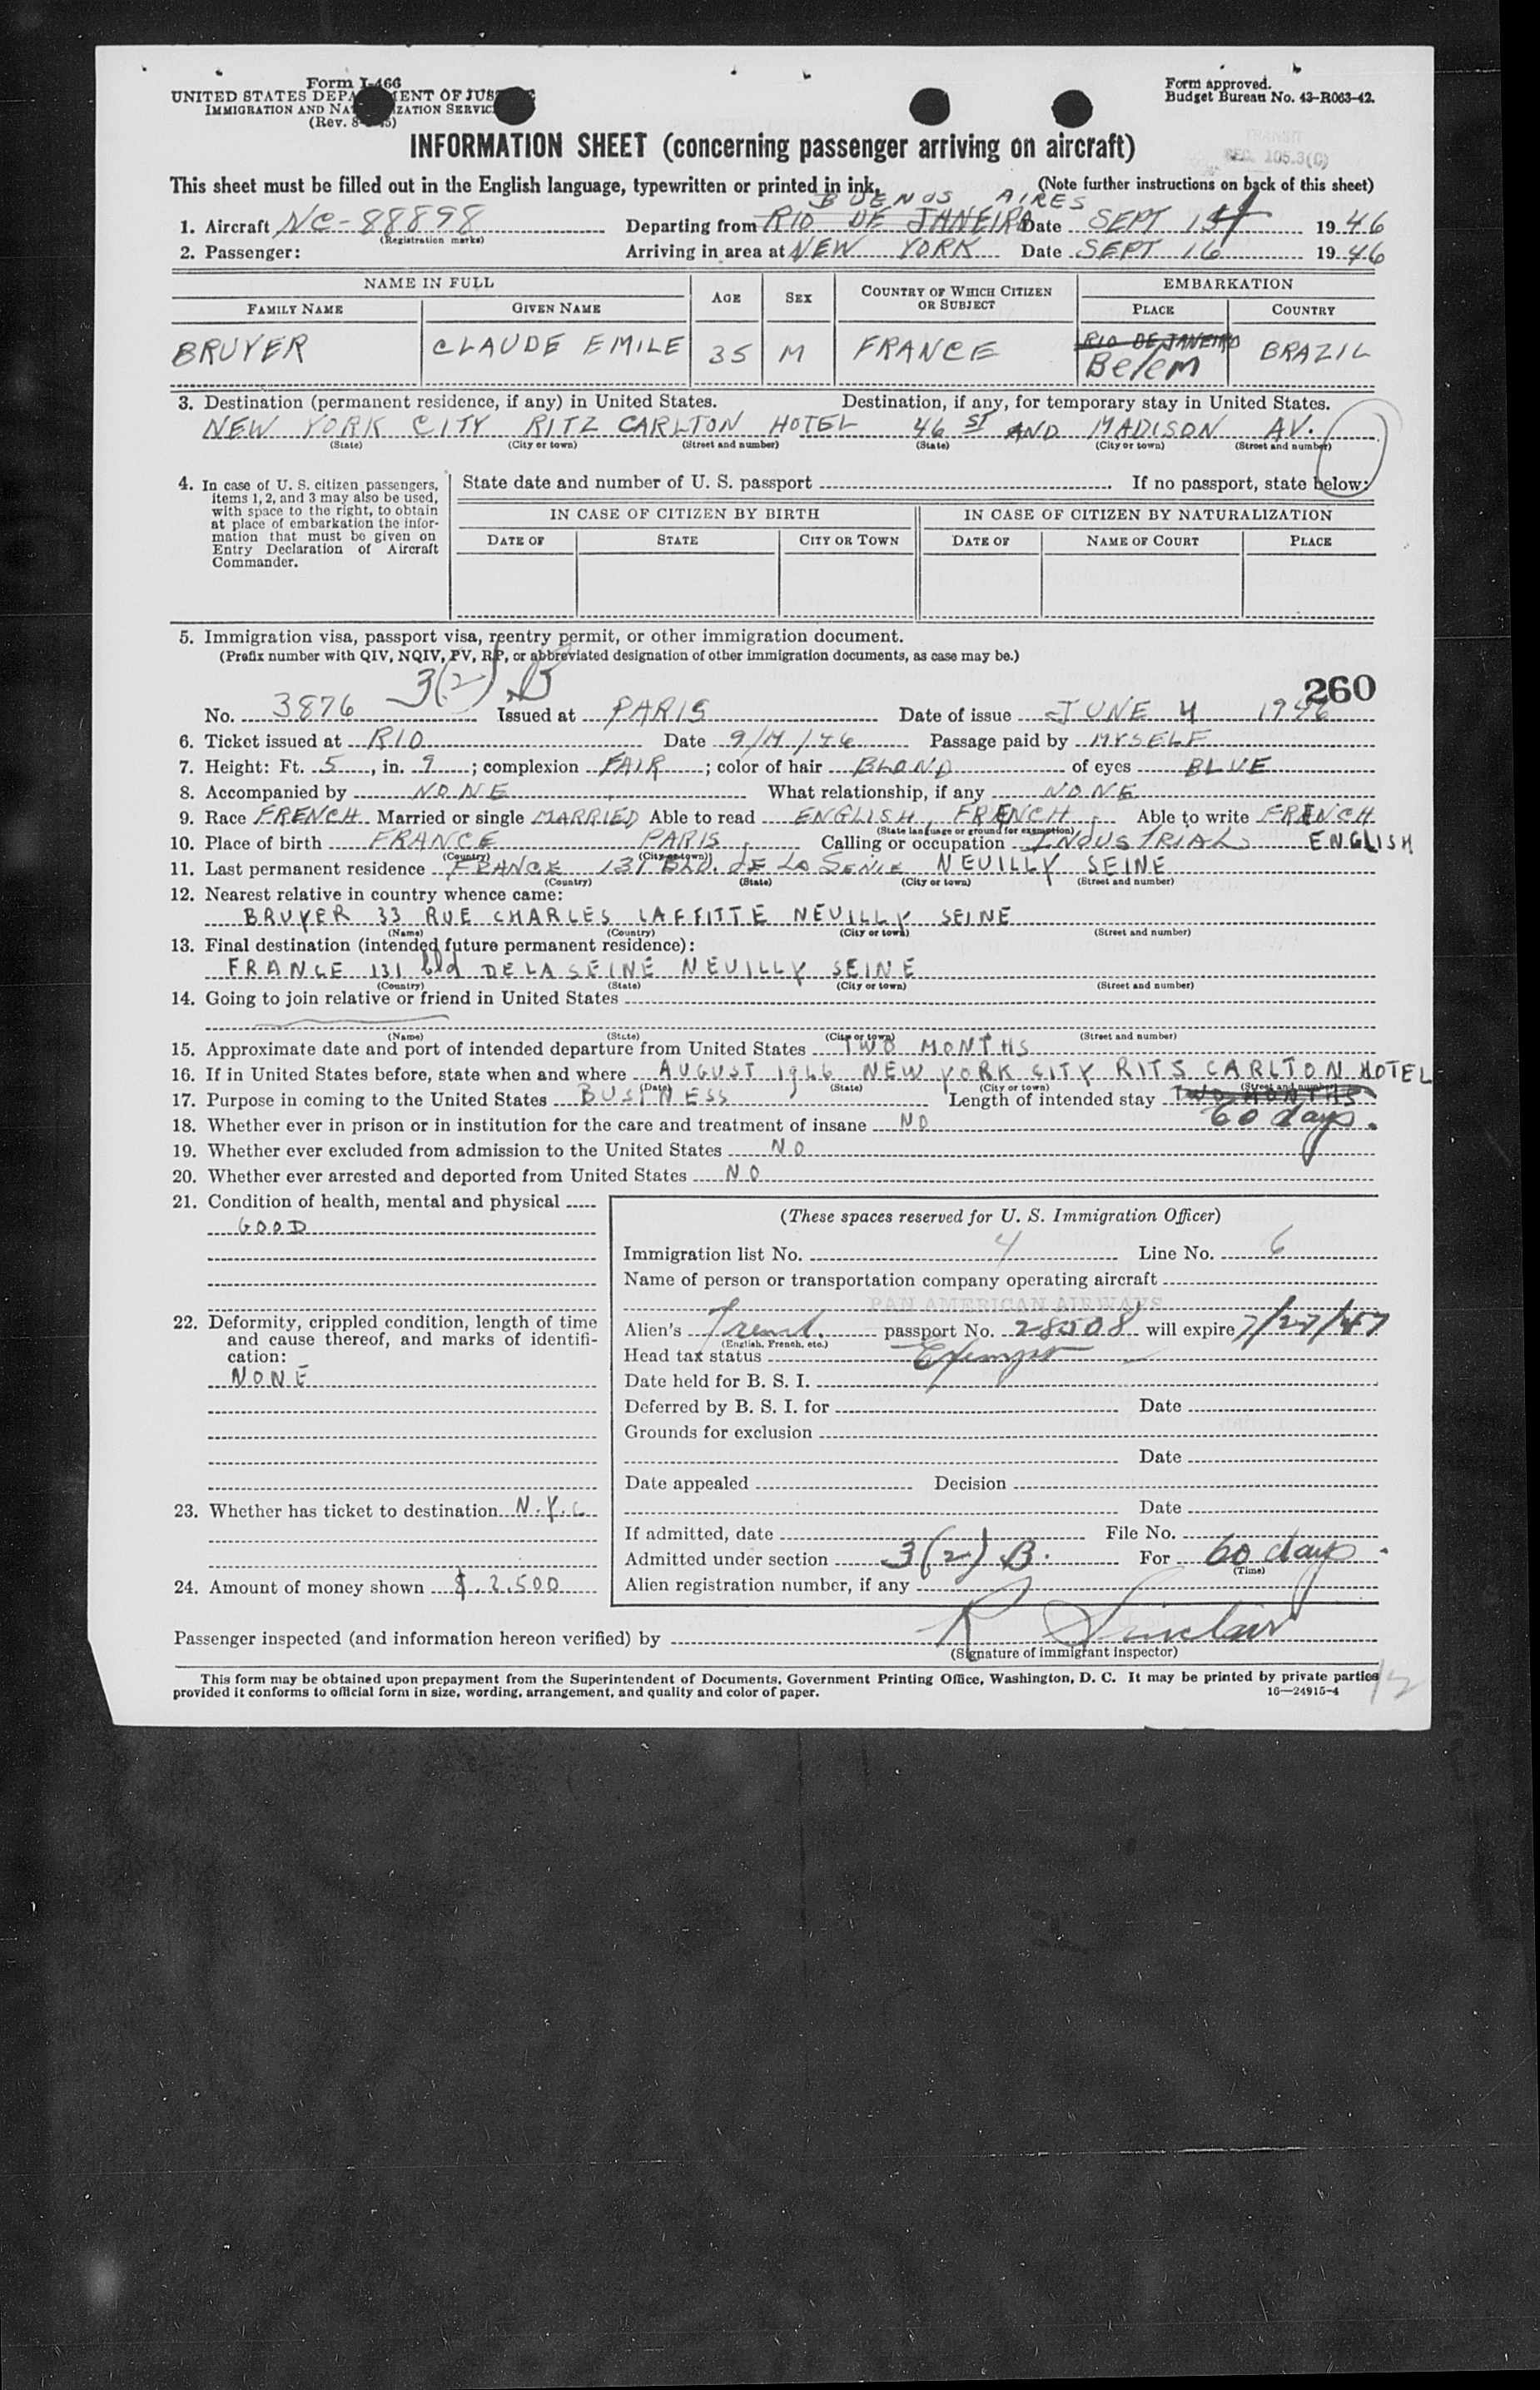 Form I-466
UNITED STATES DEPARTMENT OF JUSTICE
IMMIGRATION AND NATURALIZATION SERVICE
(Rev. 8- -45)
Form approved.
Budget Bureau No. 43-R063-42.
INFORMATION SHEET (concerning passenger arriving on aircraft)
TRANSIT
SEC. 105.3(C)
This sheet must be filled out in the English language, typewritten or printed in ink. (Note further instructions on back of this sheet)
BUENOS AIRES
1. Aircraft NC-88898 Departing from RIO DE JANEIRO Date SEPT 1946
(Registration marks)
2. Passenger: Arriving in area at NEW YORK Date SEPT 16 1946
NAME IN FULL AGE SEX COUNTRY OF WHICH CITIZEN OR SUBJECT EMBARKATION
FAMILY NAME GIVEN NAME PLACE COUNTRY
BRUYER CLAUDE EMILE 35 M FRANCE RIO DE JANEIRO BRAZIL
Belem
3. Destination (permanent residence, if any) in United States. Destination, if any, for temporary stay in United States.
NEW YORK CITY RITZ CARLTON HOTEL 46 ST AND MADISON AV.
(State) (City or town) (Street and number) (State) (City or town) (Street and number)
4. In case of U. S. citizen passengers, items 1, 2, and 3 may also be used, with space to the right, to obtain at place of embarkation the information that must be given on Entry Declaration of Aircraft Commander.
State date and number of U. S. passport If no passport, state below:
IN CASE OF CITIZEN BY BIRTH IN CASE OF CITIZEN BY NATURALIZATION
DATE OF STATE CITY OR TOWN DATE OF NAME OF COURT PLACE
5. Immigration visa, passport visa, reentry permit, or other immigration document.
(Prefix number with QIV, NQIV, PV, RP, or abbreviated designation of other immigration documents, as case may be.)
3(2) B
260
No. 3876 Issued at PARIS Date of issue JUNE 4 1946
6. Ticket issued at RIO Date Passage paid by MYSELF
7. Height: Ft. 5, in. 9; complexion FAIR; color of hair BLOND of eyes BLUE
8. Accompanied by NONE What relationship, if any NONE
9. Race FRENCH Married or single MARRIED Able to read ENGLISH, FRENCH, Able to write FRENCH
(State language or ground for exemption)
10. Place of birth FRANCE PARIS, Calling or occupation INDUSTRIAL ENGLISH
(Country) (City or town)
11. Last permanent residence FRANCE 131 BLD. DE LA SEINE NEUILLY SEINE
(Country) (State) (City or town) (Street and number)
12. Nearest relative in country whence came:
BRUYER 33 RUE CHARLES LAFFITTE NEUILLY SEINE
(Name) (Country) (City or town) (Street and number)
13. Final destination (intended future permanent residence):
FRANCE 131 bld DE LA SEINE NEUILLY SEINE
(Country) (State) (City or town) (Street and number)
14. Going to join relative or friend in United States
(Name) (State) (City or town) (Street and number)
15. Approximate date and port of intended departure from United States TWO MONTHS
16. If in United States before, state when and where AUGUST 1946 NEW YORK CITY RITS CARLTON HOTEL
(Date) (State) (City or town) (Street and number)
17. Purpose in coming to the United States BUSINESS Length of intended stay TWO MONTHS
60 days.
18. Whether ever in prison or in institution for the care and treatment of insane NO
19. Whether ever excluded from admission to the United States NO
20. Whether ever arrested and deported from United States NO
21. Condition of health, mental and physical
GOOD
22. Deformity, crippled condition, length of time and cause thereof, and marks of identification:
NONE
23. Whether has ticket to destination N.Y.C
24. Amount of money shown $.2.500
(These spaces reserved for U. S. Immigration Officer)
Immigration list No. 4 Line No. 6
Name of person or transportation company operating aircraft
PAN AMERICAN AIRWAYS
Alien's French. passport No. 28508 will expire 7/27/47
(English, French, etc.)
Head tax status Exempt
Date held for B. S. I.
Deferred by B. S. I. for Date
Grounds for exclusion
Date
Date appealed Decision
Date
If admitted, date File No.
Admitted under section 3(2) B. For 60 days.
(Time)
Alien registration number, if any
Passenger inspected (and information hereon verified) by R Sinclair
(Signature of immigrant inspector)
This form may be obtained upon prepayment from the Superintendent of Documents, Government Printing Office, Washington, D. C. It may be printed by private parties
provided it conforms to official form in size, wording, arrangement, and quality and color of paper. 16—24915-4